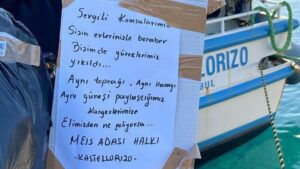 Sevgili Komşularımız
Sizin evlerinizle beraber
Bizim de yüreklerimiz
yıkıldı...
Aynı toprağı, Aynı Havayı
Aynı güneşi paylaştığımız
Kardeşlerimize
Elimizden ne geliyorsa....
MEİS ADASI HALKI
-KASTELLORIZO-
LORIZO
BUL